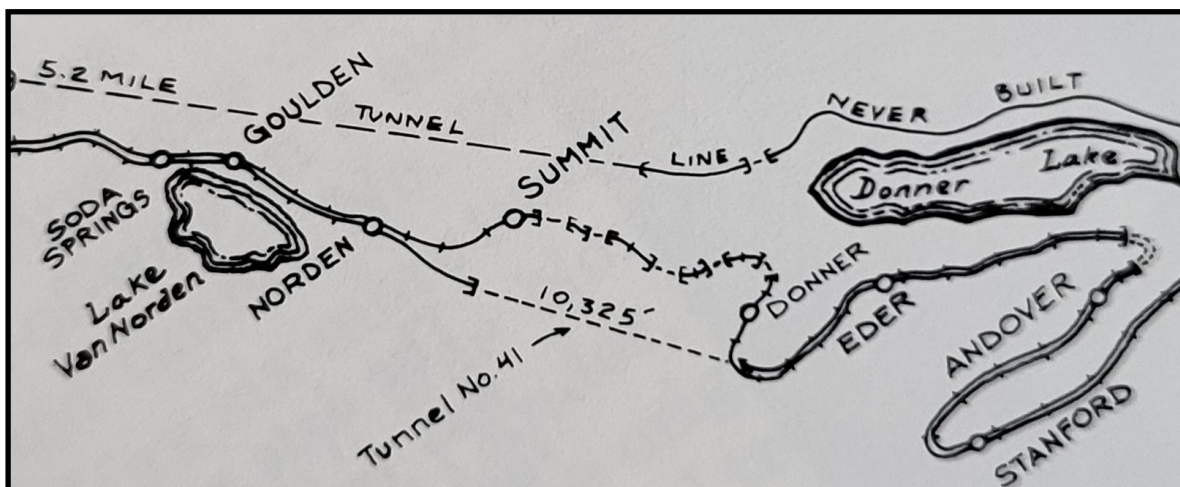 5.2 MILE
TUNNEL
LINE
NEVER
BUILT
GOULDEN
SUMMIT
Donner
Lake
SODA
SPRINGS
Lake
Van Norden
NORDEN
10,325'
Tunnel No. 41
DONNER
EDER
ANDOVER
STANFORD